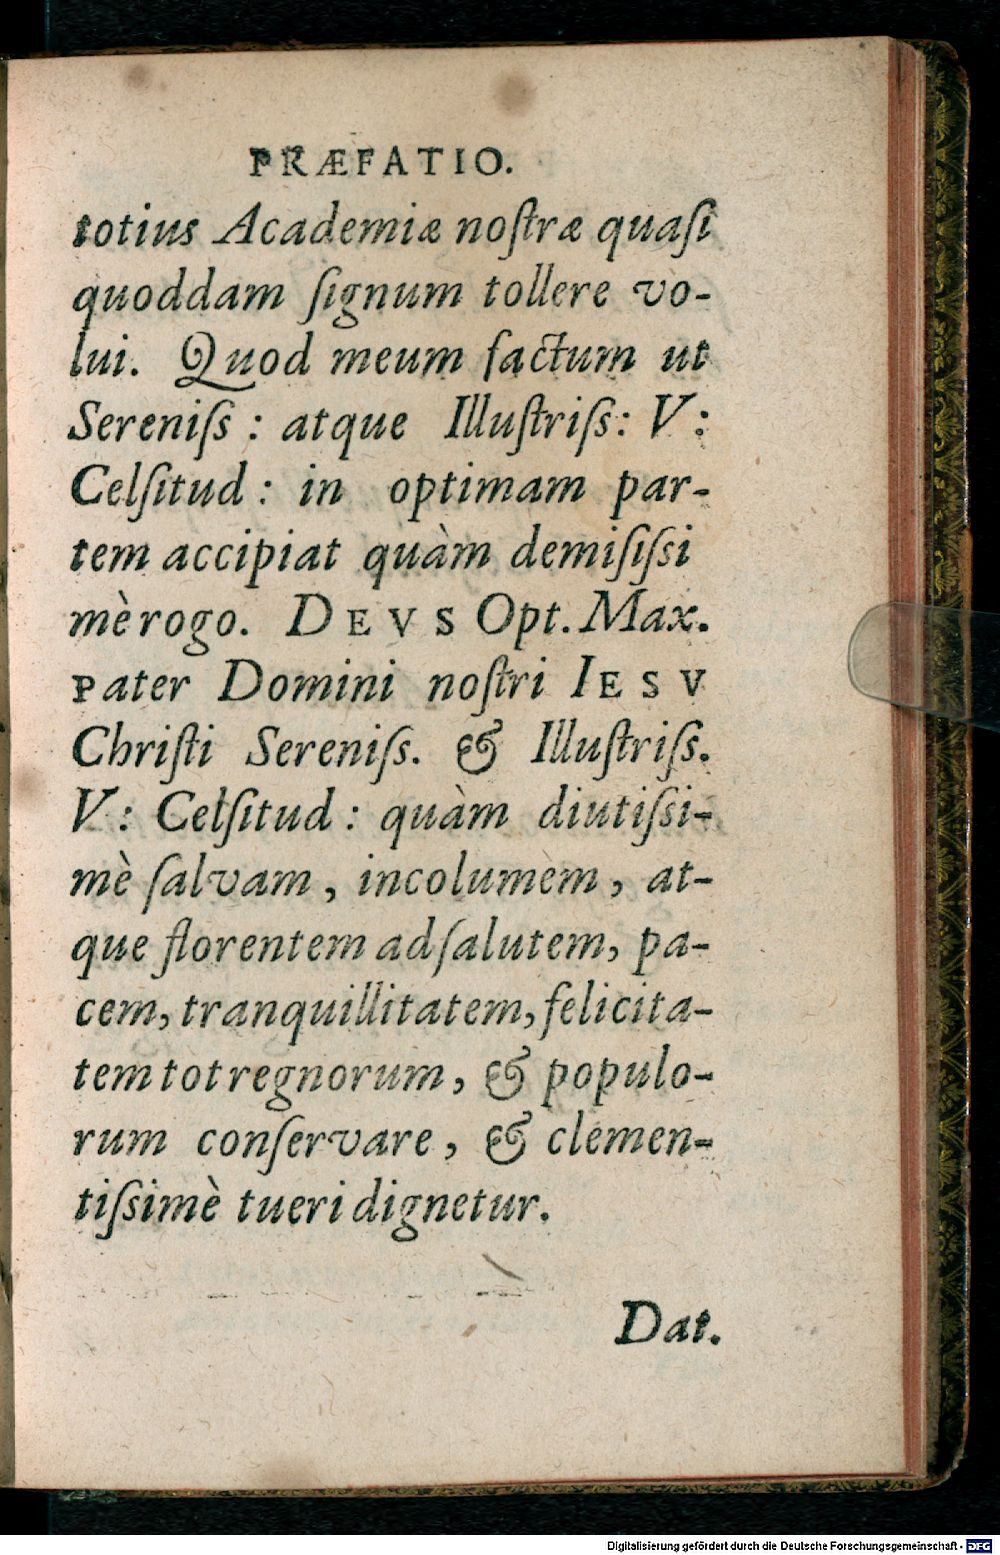 PRÆFATIO.
totius Academiæ noſtræ quaſi
quoddam ſignum tollere vo-
lui. Quod meum factum ut
Sereniſs : atque Illuſtriſs: V:
Celſitud : in optimam par-
tem accipiat quàm demiſiſsi
mè rogo. DEVS Opt. Max.
pater Domini noſtri IESV
Chriſti Sereniſs. & Illuſtriſs.
V: Celſitud : quàm diutiſsi-
mè ſalvam, incolumem, at-
que florentem ad ſalutem, pa-
cem, tranquillitatem, felicita-
tem tot regnorum, & populo-
rum conſervare, & clemen-
tiſsimè tueri dignetur.
Dat.
Digitalisierung gefördert durch die Deutsche Forschungsgemeinschaft - DFG